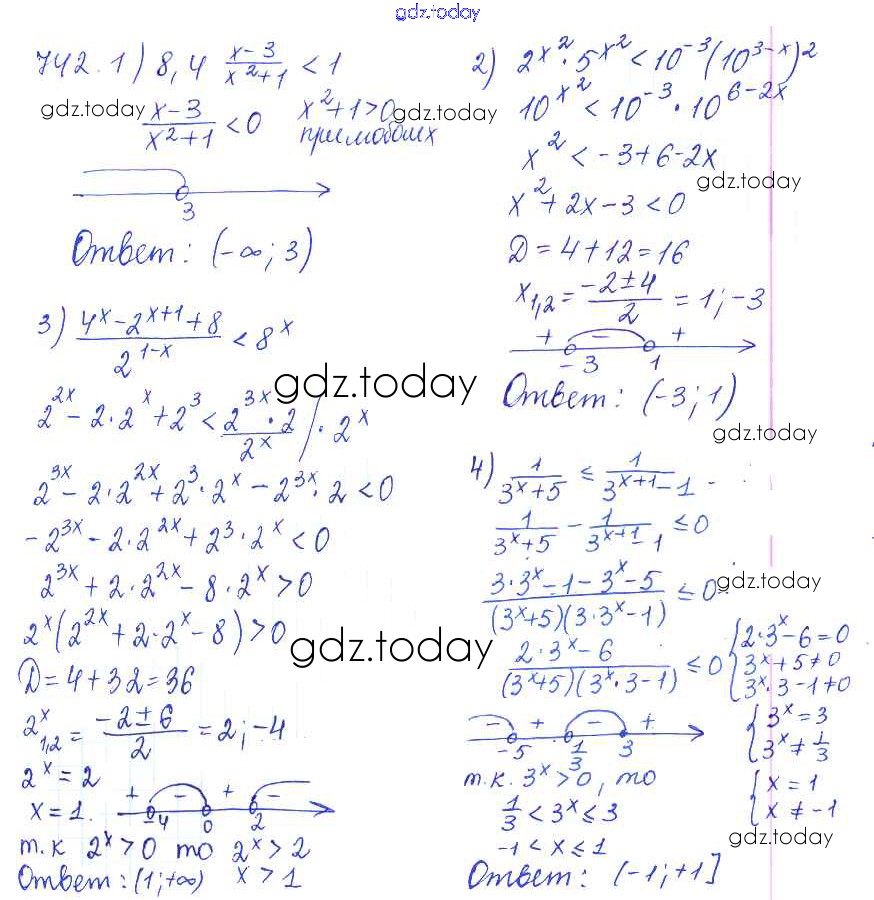 gdz.today
742. 1) 8,4 ^ (x-3)/(x²+1) < 1
gdz.today (x-3)/(x²+1) < 0 x²+1>0 gdz.today
при любых
3
Ответ: (-∞; 3)
2) 2^x² · 5^x² < 10^-3 (10^3-x)²
10^x² < 10^-3 · 10^6-2x
x² < -3+6-2x
gdz.today
x²+2x-3 < 0
D = 4+12 = 16
x₁,₂ = (-2±4)/2 = 1; -3
+ - +
-3 1
Ответ: (-3; 1)
gdz.today
3) (4^x - 2^x+1 + 8)/(2^1-x) < 8^x
gdz.today
2^2x - 2·2^x + 2³ < (2^3x · 2)/(2^x) / · 2^x
2^3x - 2·2^2x + 2³·2^x - 2^3x · 2 < 0
-2^3x - 2·2^2x + 2³·2^x < 0
2^3x + 2·2^2x - 8·2^x > 0
2^x (2^2x + 2·2^x - 8) > 0
gdz.today
D = 4+32 = 36
2^x₁,₂ = (-2±6)/2 = 2; -4
2^x = 2
x = 1.
+ - + -
-4 0 2
т.к 2^x > 0 то 2^x > 2
Ответ: (1; +∞) x > 1
4) 1/(3^x+5) ≤ 1/(3^x+1 - 1)
1/(3^x+5) - 1/(3^x+1 - 1) ≤ 0
(3·3^x - 1 - 3^x - 5)/((3^x+5)(3·3^x-1)) ≤ 0 gdz.today
(2·3^x - 6)/((3^x+5)(3^x·3-1)) ≤ 0
{ 2·3^x - 6 = 0
3^x + 5 ≠ 0
3^x · 3 - 1 ≠ 0
{ 3^x = 3
3^x ≠ 1/3
{ x = 1
x ≠ -1
- + - +
-5 1/3 3
т.к. 3^x > 0, то
1/3 < 3^x ≤ 3
-1 < x ≤ 1
gdz.today
Ответ: (-1; +1]